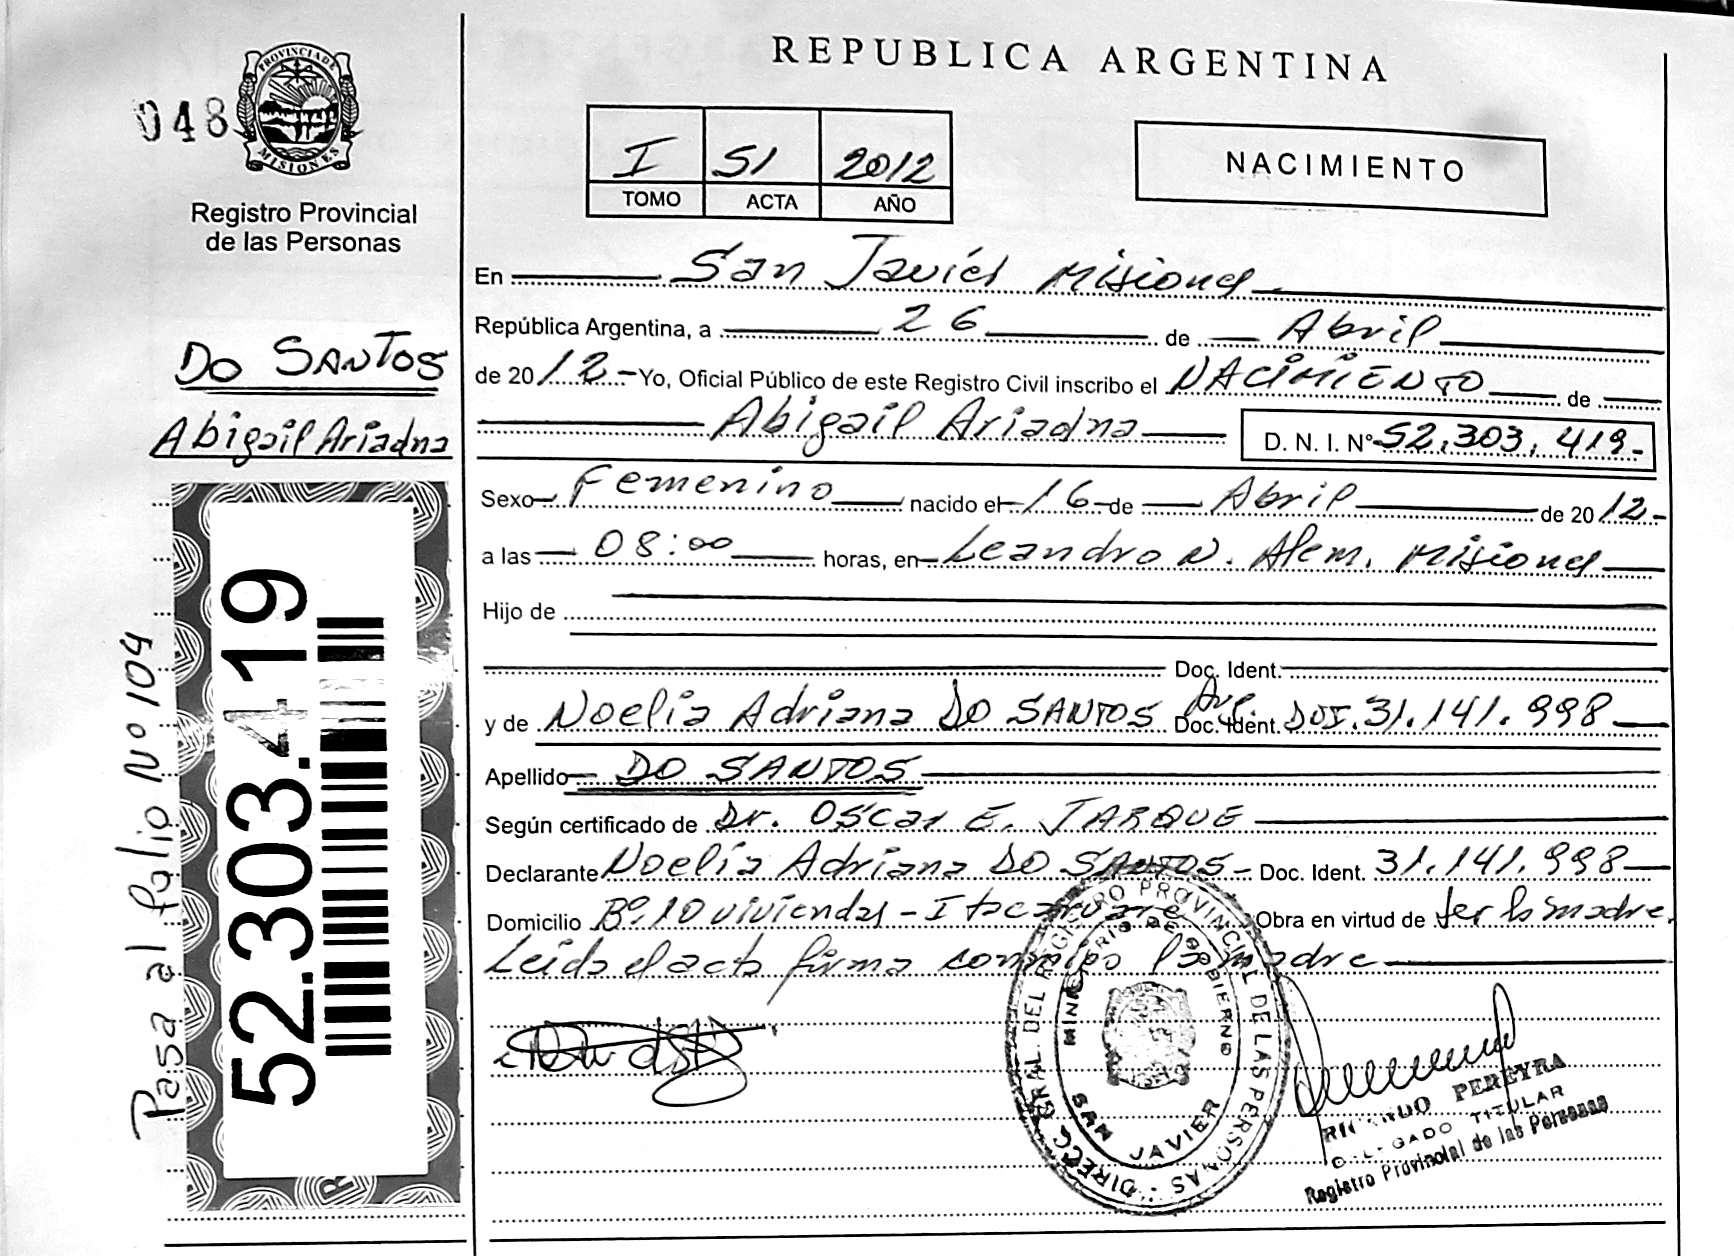 048
PROVINCIA DE
MISIONES
Registro Provincial
de las Personas
DO SANTOS
Abigail Ariadna
Pasa al folio Nº 104
52.303.419
REPUBLICA ARGENTINA
I 51 2012
TOMO ACTA AÑO
NACIMIENTO
En San Javier Misiones
República Argentina, a 26 de Abril
de 2012 - Yo, Oficial Público de este Registro Civil inscribo el NACIMIENTO de
Abigail Ariadna D. N. I. Nº 52.303.419-
Sexo Femenino nacido el 16 de Abril de 2012-
a las 08:00 horas, en Leandro N. Alem. Misiones
Hijo de
Doc. Ident.
y de Noelia Adriana DO SANTOS Arg. Doc. Ident. DUI.31.141.998
Apellido DO SANTOS
Según certificado de Dr. Oscar E. JARQUE
Declarante Noelia Adriana DO SANTOS - Doc. Ident. 31.141.998
Domicilio Bº.10 viviendas - Itacaruare Obra en virtud de ser la madre.
Leida el acta firma conmigo la madre
DIRECC. GRAL. DEL REGISTRO PROVINCIAL DE LAS PERSONAS
MINISTERIO DE GOBIERNO
SAN JAVIER
RICARDO PEREYRA
DELEGADO TITULAR
Registro Provincial de las Personas